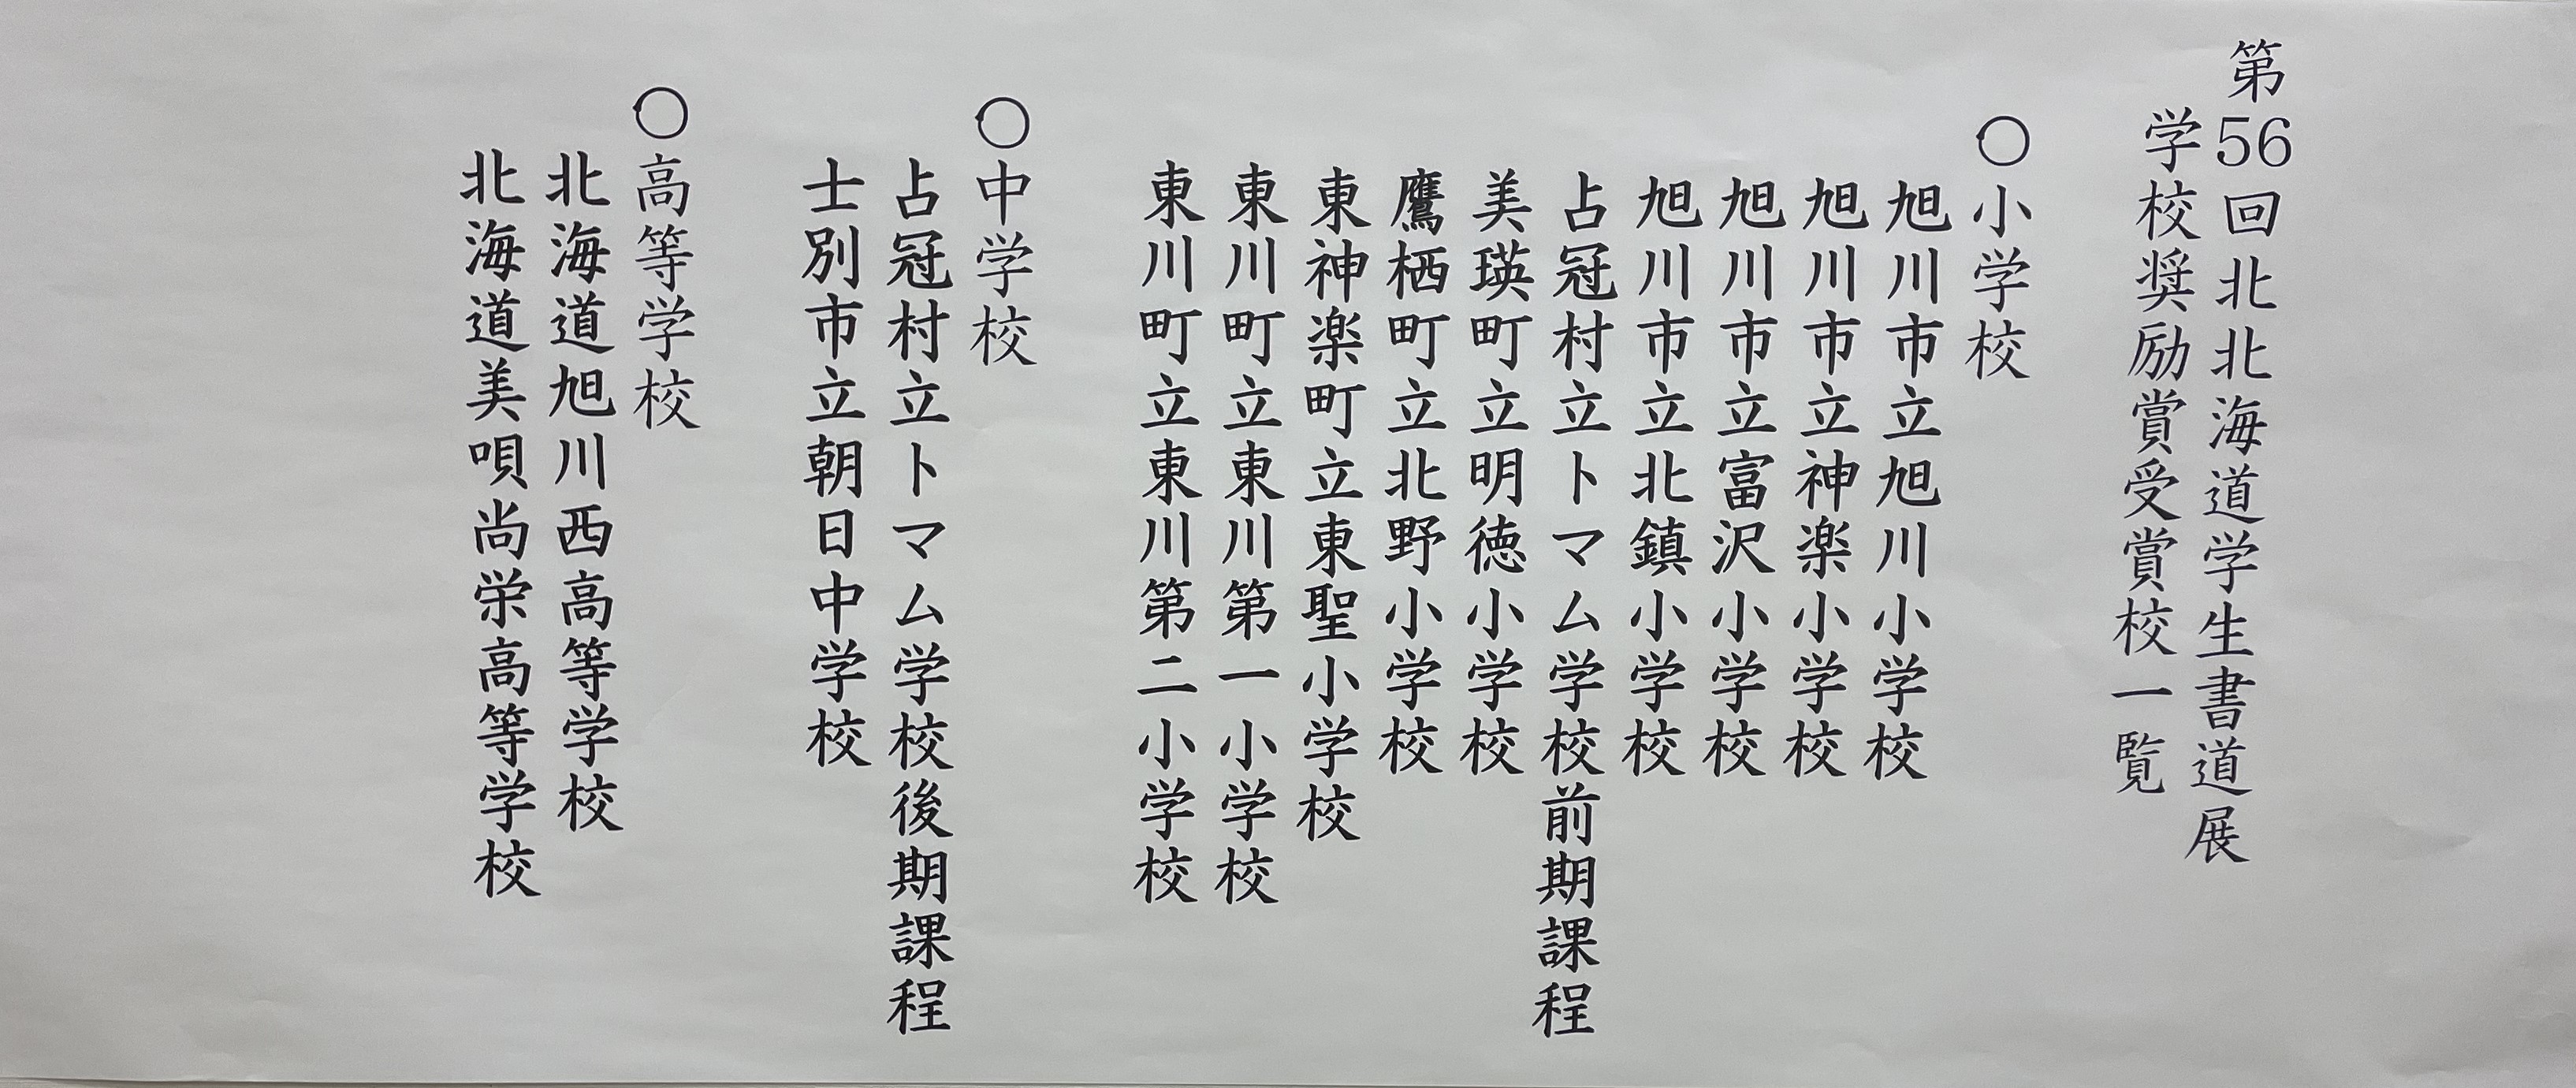 第56回北北海道学生書道展
学校奨励賞受賞校一覧
○小学校
旭川市立旭川小学校
旭川市立神楽小学校
旭川市立富沢小学校
旭川市立北鎮小学校
占冠村立トマム学校前期課程
美瑛町立明徳小学校
鷹栖町立北野小学校
東神楽町立東聖小学校
東川町立東川第一小学校
東川町立東川第二小学校
○中学校
占冠村立トマム学校後期課程
士別市立朝日中学校
○高等学校
北海道旭川西高等学校
北海道美唄尚栄高等学校